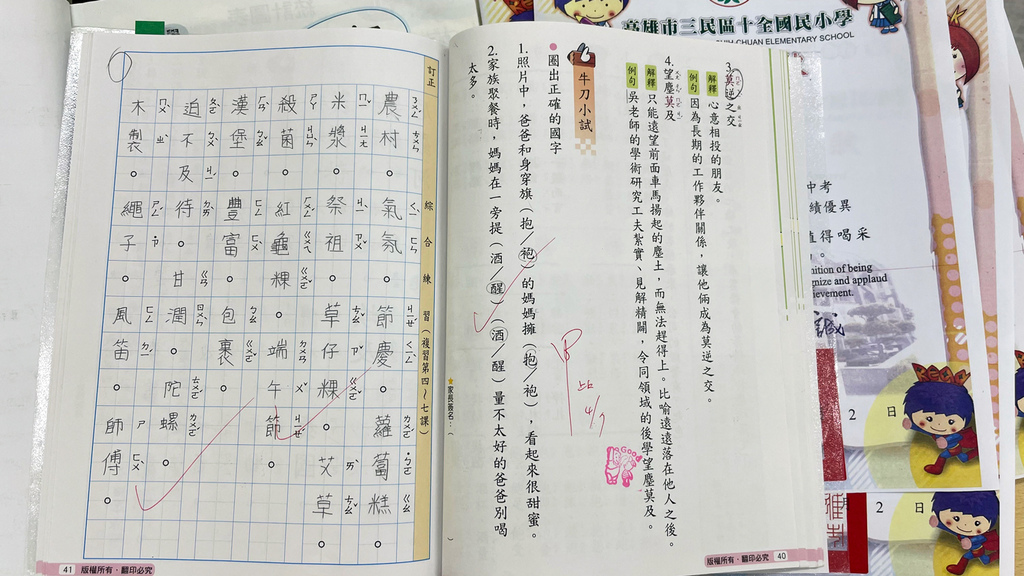 高雄市三民區十全國民小學
CHUAN ELEMENTARY SCHOOL
3.莫逆之交
解釋 心意相投的朋友。
例句 因為長期的工作夥伴關係,讓他倆成為莫逆之交。
4.望塵莫及
解釋 只能遠望前面車馬揚起的塵土,而無法趕得上。比喻遠遠落在他人之後。
例句 吳老師的學術研究工夫紮實、見解精闢,令同領域的後學望塵莫及。
牛刀小試
圈出正確的國字
1.照片中,爸爸和身穿旗(抱/袍)的媽媽擁(抱/袍),看起來很甜蜜。
2.家族聚餐時,媽媽在一旁提(酒/醒)(酒/醒)量不太好的爸爸別喝
太多。
★家長簽名:(
4/7
Good
版權所有.翻印必究 40
訂正
綜合練習(複習第四~七課)
農村。氣氛。節慶。蘿蔔糕。
米漿。祭祖。草仔粿。艾草。
殺菌。紅龜粿。端午節。
漢堡。豐富。包裹。
迫不及待。甘潤。陀螺。
木製。繩子。風笛。師傅。
41 版權所有.翻印必究
績優異
值得喝采
nition of being
gnize and applaud
ievement.
誠
2 日
2 日